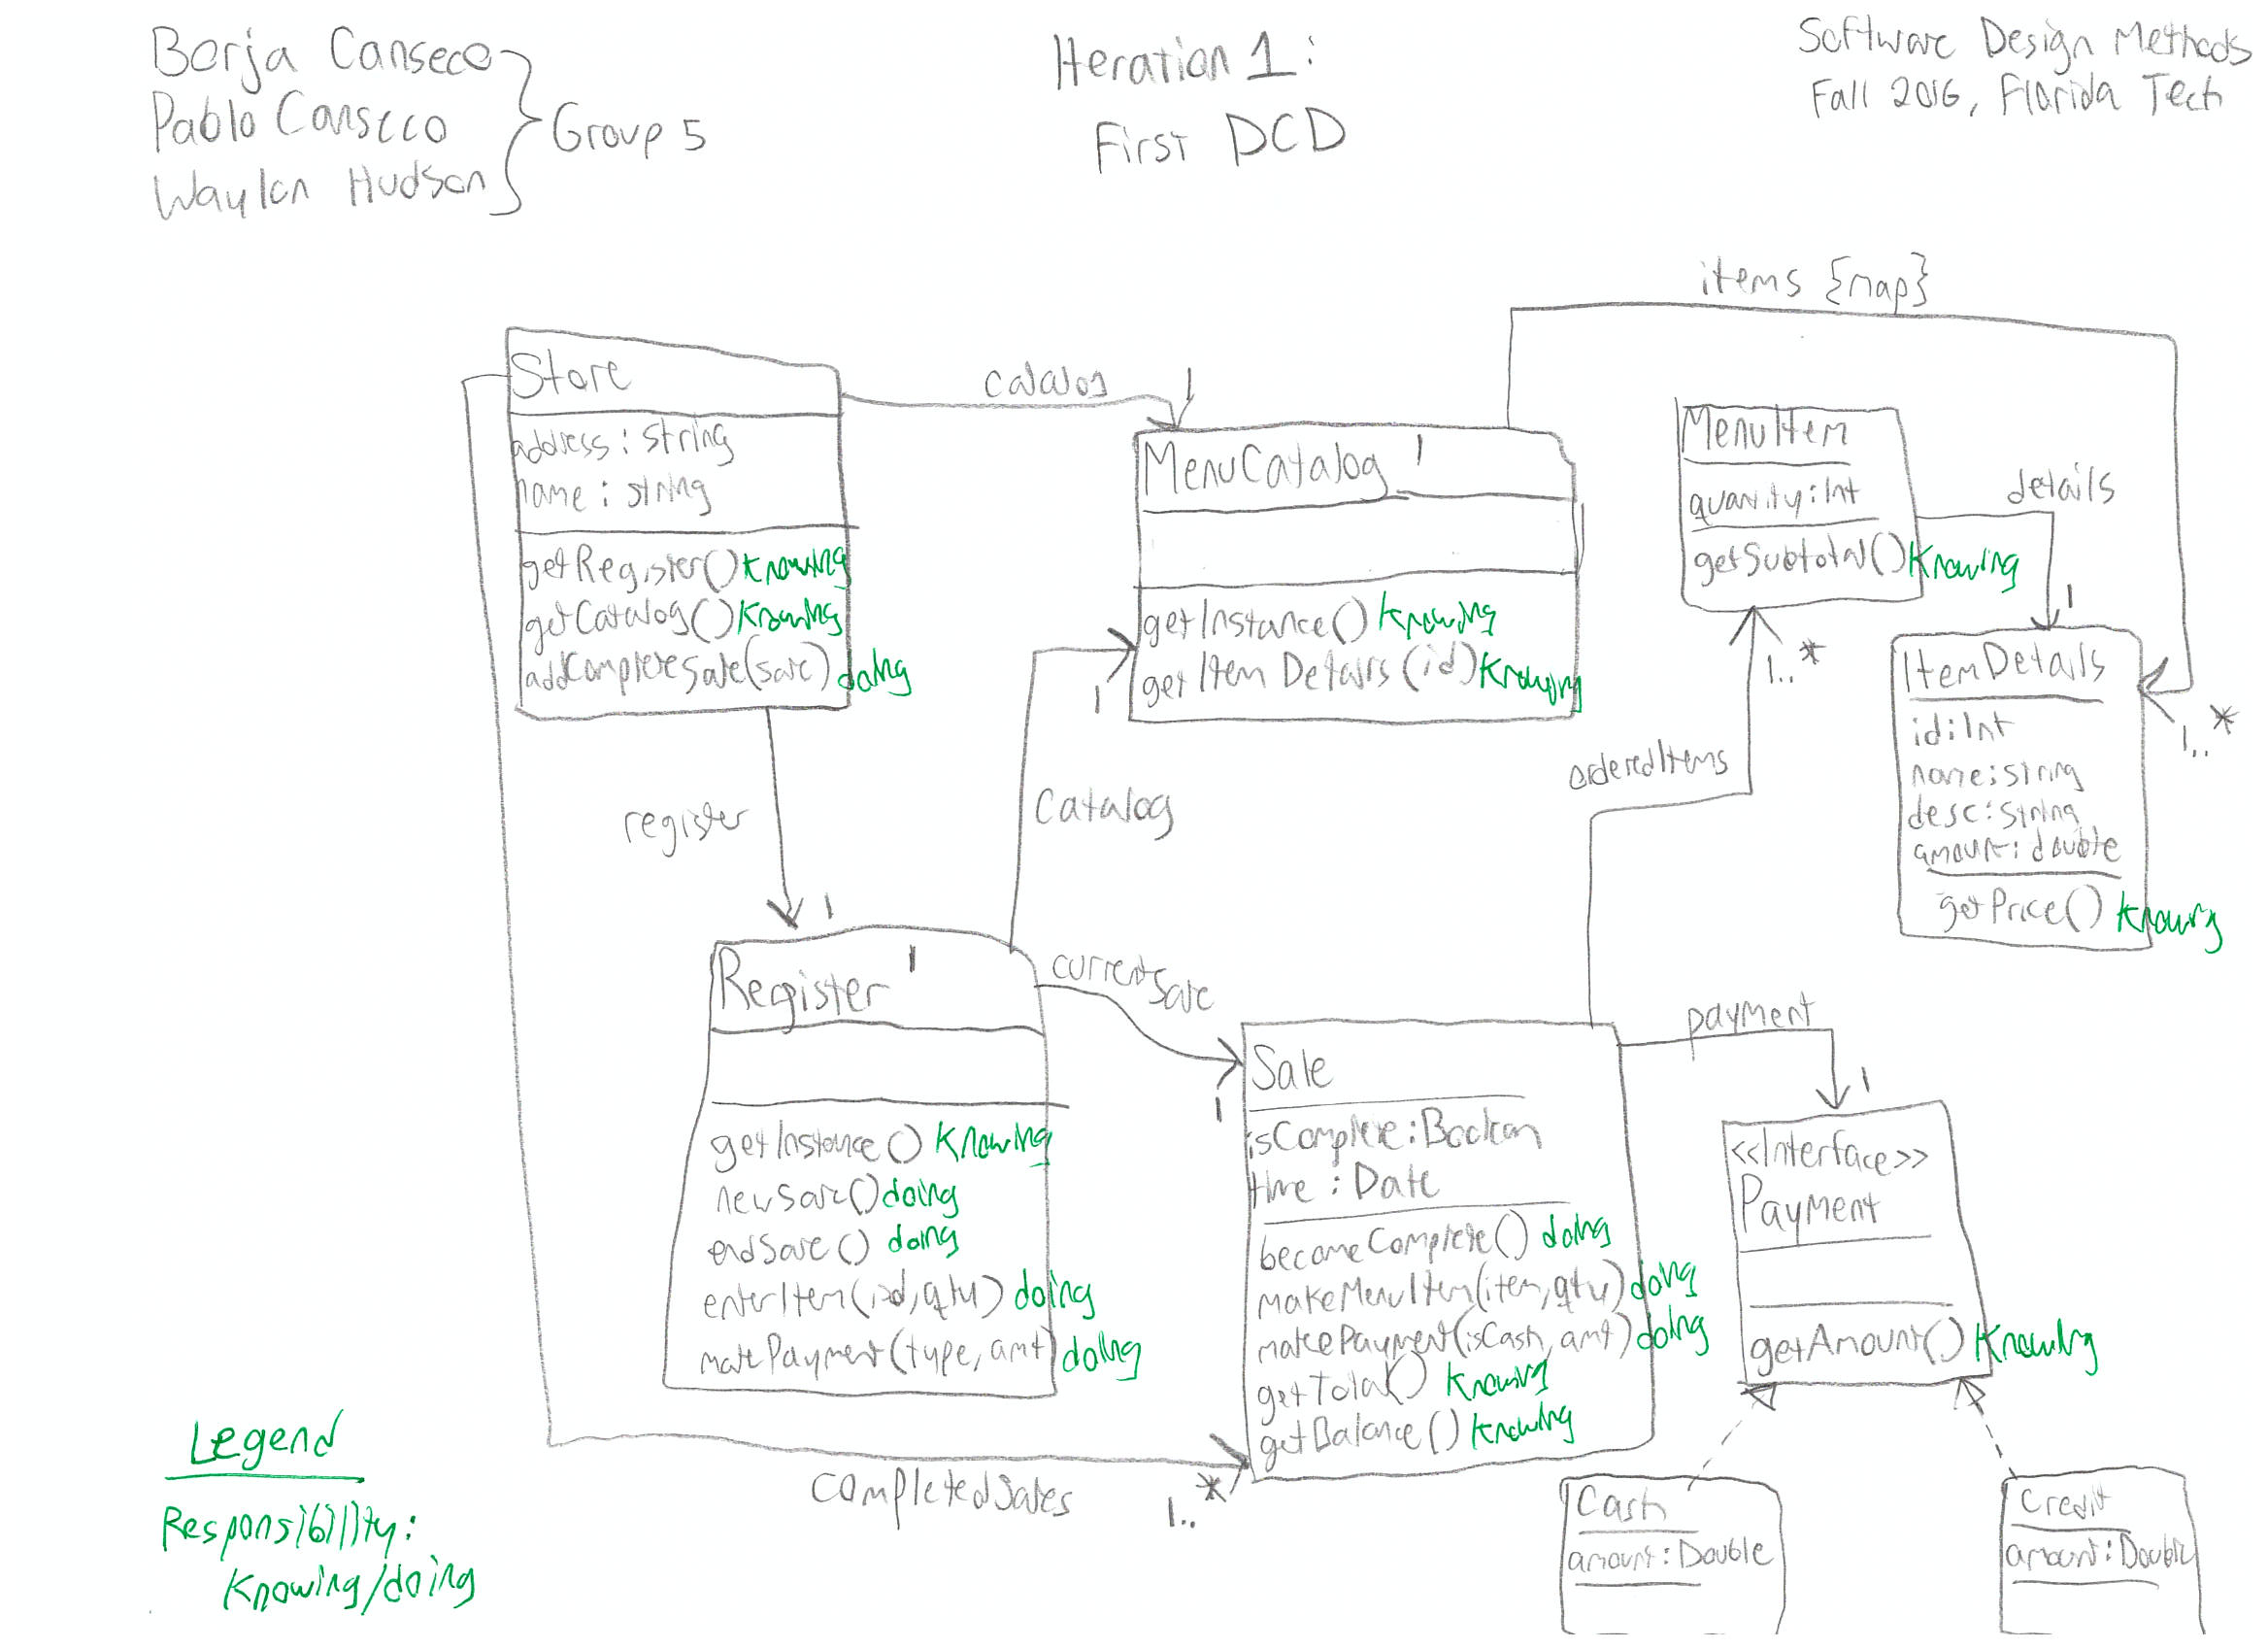 Borja Canseco
Pablo Canseco
Waylon Hudson
Group 5
Iteration 1:
First DCD
Software Design Methods
Fall 2016, Florida Tech
items {map}
Store
address : string
name : string
getRegister() knowing
getCatalog() knowing
addCompleteSale(sale) doing
catalog
1
MenuCatalog 1
getInstance() knowing
getItemDetails (id) knowing
MenuItem
quantity : Int
getSubtotal() knowing
details
1
ItemDetails
id : Int
name : string
desc : string
amount : double
getPrice() knowing
1..*
1..*
orderedItems
register
1
catalog
1
Register 1
getInstance() knowing
newSale() doing
endSale() doing
enterItem(id, qty) doing
makePayment(type, amt) doing
currentSale
1
Sale
isComplete : Boolean
time : Date
becomeComplete() doing
makeMenuItem(item, qty) doing
makePayment(isCash, amt) doing
getTotal() knowing
getBalance() knowing
payment
1
<<Interface>>
Payment
getAmount() knowing
completedSales
1..*
Cash
amount : Double
Credit
amount : Double
Legend
Responsibility:
knowing/doing